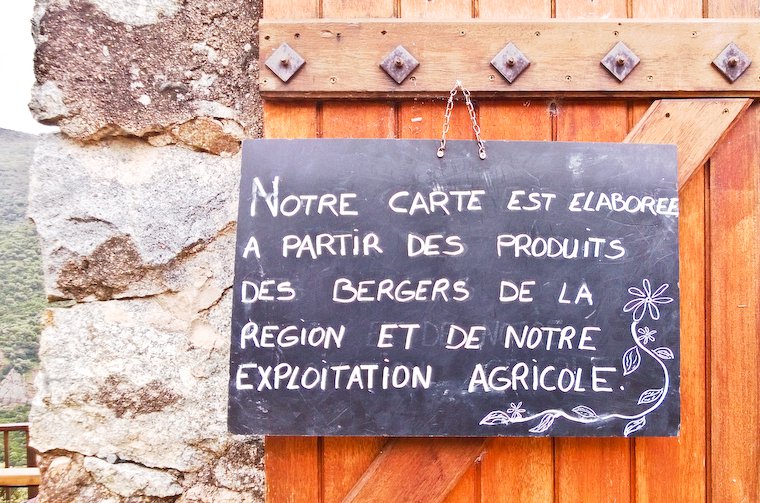 NOTRE CARTE EST ELABOREE
A PARTIR DES PRODUITS
DES BERGERS DE LA
REGION ET DE NOTRE
EXPLOITATION AGRICOLE.